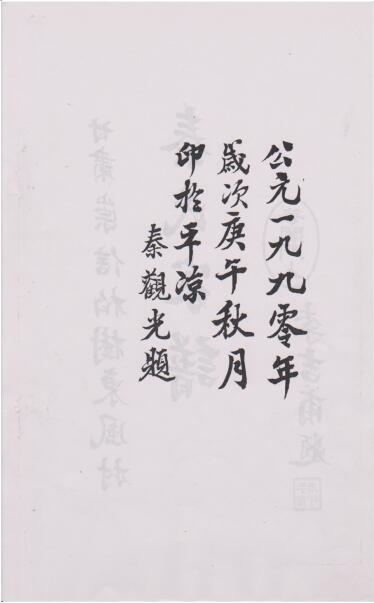 公元一九九零年
歲次庚午秋月
印於平凉
秦觀光題